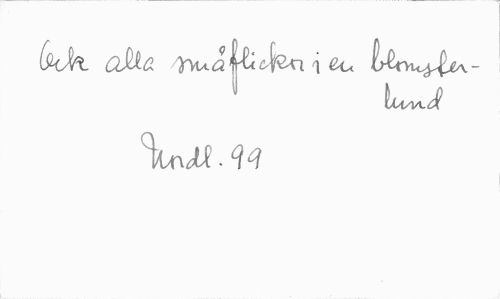 Ack alla småflickor i en blomster-
lund
Nordl. 99